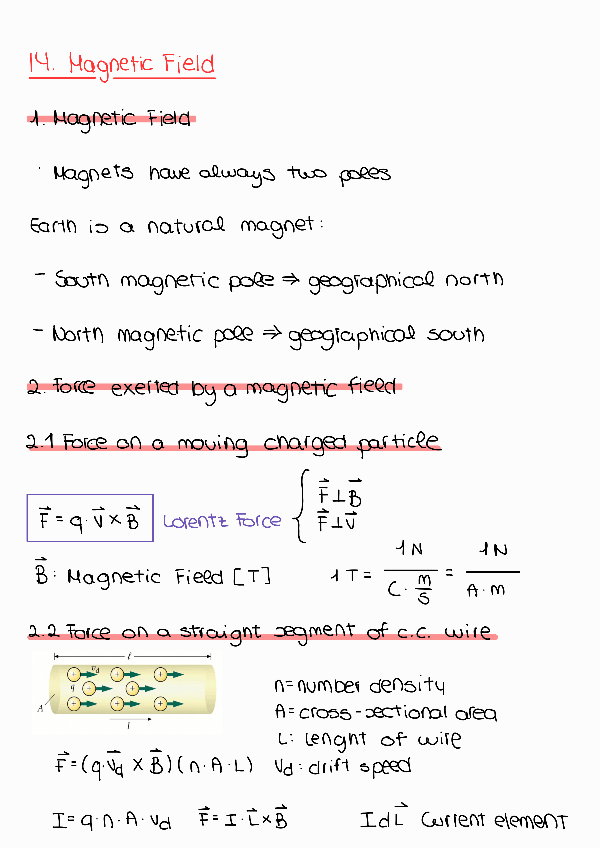 14. Magnetic Field
1. Magnetic Field
· Magnets have always two poles
Earth is a natural magnet:
- South magnetic pole ⇒ geographical north
- North magnetic pole ⇒ geographical south
2. Force exerted by a magnetic field
2.1 Force on a moving charged particle
F⃗ = q · v⃗ × B⃗ Lorentz Force { F⃗ ⊥ B⃗
F⃗ ⊥ v⃗
B⃗: Magnetic Field [T] 1 T = 1N / (C · m/s) = 1N / (A · m)
2.2 Force on a straight segment of c.c. wire
ℓ
v⃗d
q
A
I
n = number density
A = cross-sectional area
L: lenght of wire
F⃗ = (q · v⃗d × B⃗) (n · A · L) Vd: drift speed
I = q · n · A · vd F⃗ = I · L⃗ × B⃗ I dL⃗ Current element